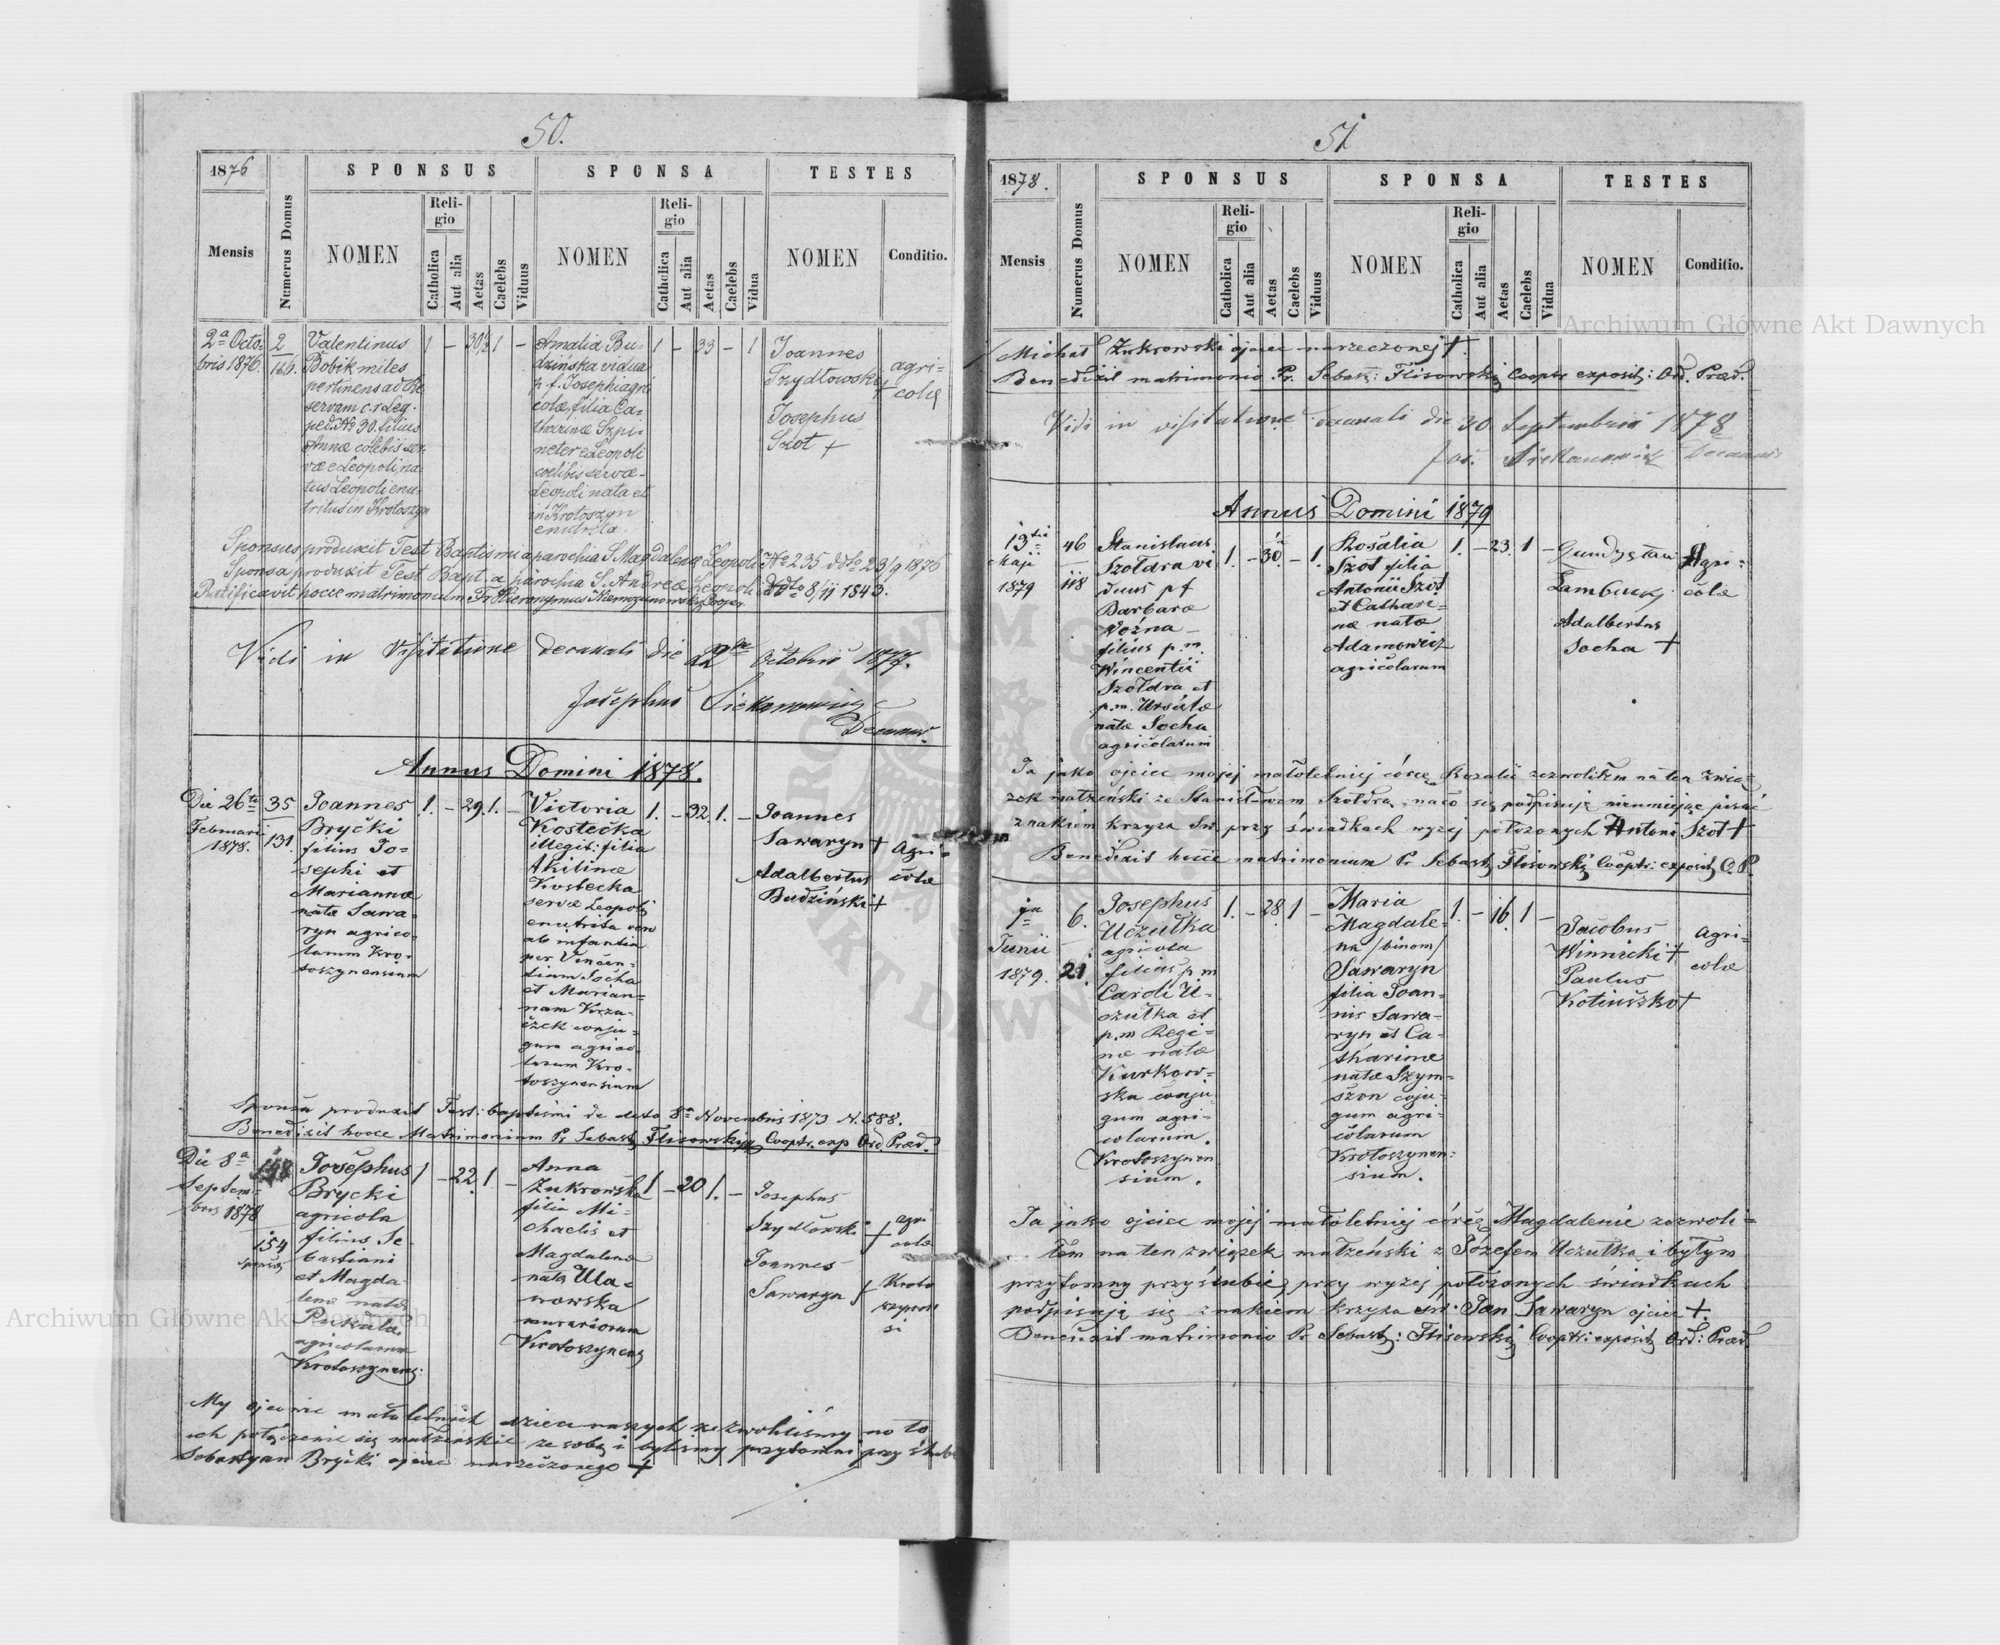 50.
1876
SPONSUS
SPONSA
TESTES
Mensis
Numerus Domus
NOMEN
Religio
Catholica
Aut alia
Aetas
Caelebs
Viduus
NOMEN
Religio
Catholica
Aut alia
Aetas
Caelebs
Vidua
NOMEN
Conditio.
2a Octo-
bris 1876.
2
166.
Valentinus
Bobik miles
pertinens ad Re
servam c. r Leg.
ped. No 30. filius
Annæ cœlebis ser
væ e Leopoli, na
tus Leopoli enu-
tritus in Krotoszyn
1 - 30½ 1 -
Amalia Bu-
dzińska vidua
p. f. Josephi agri
colæ, filia Ca-
tharinæ Szpi-
neter e Leopoli
cœlibis servæ-
Leopoli nata et
in Krotoszyn
enutrita.
1 - 33 - 1
Joannes
Szydłowski +
Josephus
Szot +
agri=
colæ
Sponsus produxit Test Baptismi a parochia S. Magdalenæ Leopoli No 235 ddto 23/9 1876
Sponsa produxit Test Bapt. a parochia S. Andreæ Leopoli ddto 8/11 1843.
Ratificavit hocce matrimonium Fr Hieronymus
Vidi in Visitatione decanali die 22 Octobris 1877.
Josephus
Decanus.
Annus Domini 1878.
Die 26ta
Februarii
1878.
35
131.
Joannes
Bryćki
filius Jo=
sephi et
Mariannæ
natæ Sawa=
ryn agrico=
larum Kro=
toszynensium
1. - 29. 1. -
Victoria
Kostecka
illegit: filia
Akilinæ
Kostecka
servæ Leopoli
enutrita vero
ab infantia
per Vincen=
tium Socha
et Marian=
nam Krza=
czek conju=
gum agrico=
larum Kro=
toszynensium
1. - 32. 1. -
Joannes
Sawaryn +
Adalbertus
Budziński +
agri=
colæ
Sponsa produxit Test: baptismi de dato 8a Novembris 1873 N. 588.
Benedixit hocce Matrimonium Pr Sebast. Flisowski Cooptr. exp Ord Præd.
Die 8a
Septem=
bris 1878
148
154
sponsæ
Josephus
Brycki
agricola
filius Se
bastiani
et Magda=
lenæ natæ
Pukala.
agricolarum
Krotoszynens:
1 - 22. 1. -
Anna
Żukrowska
filia Mi=
chaelis et
Magdalenæ
natæ Ula=
nowska
murariorum
Krotoszynens
1 - 20 1. -
Josephus
Szydłowski +
Joannes
Sawaryn +
agri
colæ
Kroto
szynen
si
My ojcowie małoletnich dzieci naszych zezwoliliśmy na to
ich połączenie się małżeńskie ze sobą i byliśmy przytomni przy ślubie
Sebastyan Bryćki ojciec narzeczonego +
51
1878.
SPONSUS
SPONSA
TESTES
Mensis
Numerus Domus
NOMEN
Religio
Catholica
Aut alia
Aetas
Caelebs
Viduus
NOMEN
Religio
Catholica
Aut alia
Aetas
Caelebs
Vidua
NOMEN
Conditio.
Michał Żukrowski ojciec narzeczonej +.
Benedixit matrimonio Pr. Sebast: Flisowski Cooptr exposit: Ord. Præd.
Vidi in visitatione decanali die 30 Septembris 1878
Jos. Decanus
Annus Domini 1879
13tia
Maji
1879
46
118
Stanislaus
Szołdra vi
duus p f
Barbaræ
Woźna -
filius p. m.
Wincentii
Szołdra et
p. m. Ursulæ
natæ Socha
agricolarum
1. - 30. - 1.
Rosalia
Szot filia
Antonii Szot
et Cathari=
næ natæ
Adamowicz
agricolarum
1. - 23. 1 -
Adalbertus
Socha +
Agri=
colæ
Ja jako ojciec mojej małoletniej córce Rozalii zezwoliłem na ten zwią=
zek małżeński ze Stanisławem Szołdra, na co się podpisuję nieumiejąc pisać
znakiem krzyża Sw. przy świadkach wyżej położonych Antoni Szot +
Benedixit hocce matrimonium Pr Sebast. Flisowski Cooptr: exposit O. P.
1a
Junii
1879.
6.
21.
Josephus
Uczułka
agricola
filius p m
Caroli U=
czułka et
p. m Regi=
næ natæ
Kurkow=
ska conju
gum agri=
colarum.
Krotoszynen
sium.
1. - 28. 1 -
Maria
Magdale=
na /binom/
Sawaryn
filia Joan=
nis Sawa=
ryn et Ca=
tharinæ
natæ Szym=
szon coju=
gum agri=
colarum
Krotoszynen=
sium.
1. - 16. 1 -
Jacobus
Winnicki +
Paulus
Kotiuszko +
agri=
colæ
Ja jako ojciec mojej małoletniej córce Magdalenie zezwoli=
łem na ten związek małżeński z Józefem Uczułka i byłym
przytomny przy ślubie, przy wyżej położonych świadkach
podpisuję się znakiem krzyża św. Jan Sawaryn ojciec +.
Benedixit matrimonio Pr Sebast: Flisowski Cooptr: exposit Ord: Præd.
Archiwum Główne Akt Dawnych
Archiwum Główne Akt Dawnych